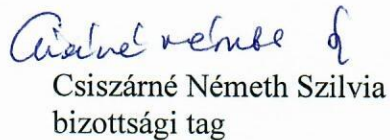 Csiszárné Németh Szilvia
bizottsági tag